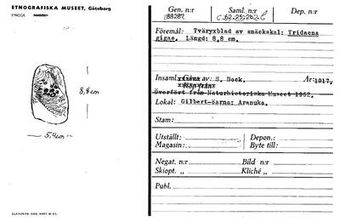 ETNOGRAFISKA MUSEET, Göteborg
8,8 cm
5,4 cm
Gen. n:r
Saml. n:r
Dep. n:r
Föremål: Tväryxblad av snäckskal: Tridacna
gigas. Längd: 8,8 cm.
Insaml. av: S. Bock. År: 1917.
Överfört från Naturhistoriska Museet 1952.
Lokal: Gilbert-öarna: Aranuka.
Stam:
Utställt:
Depon.:
Magasin:
Byte till:
Negat. n:r
Bild n:r
Skiopt. n:r
Kliché n:r
Publ.